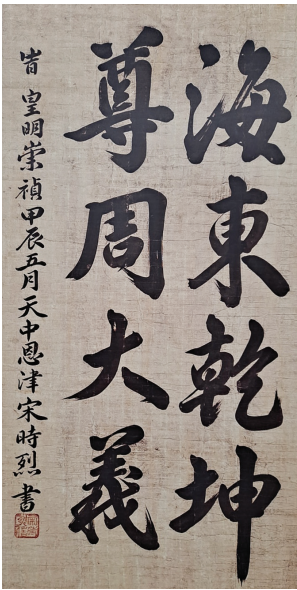 海東乾坤
尊周大義
皇明崇禎甲辰五月天中恩津宋時烈書